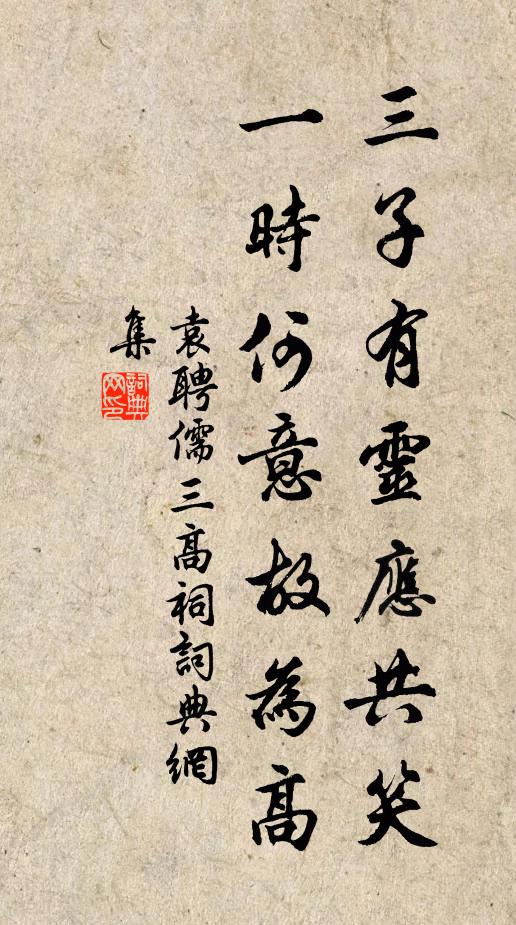 三子有靈應共笑
一時何意故為高
袁聘儒三高祠詞典網
集
詞典網印